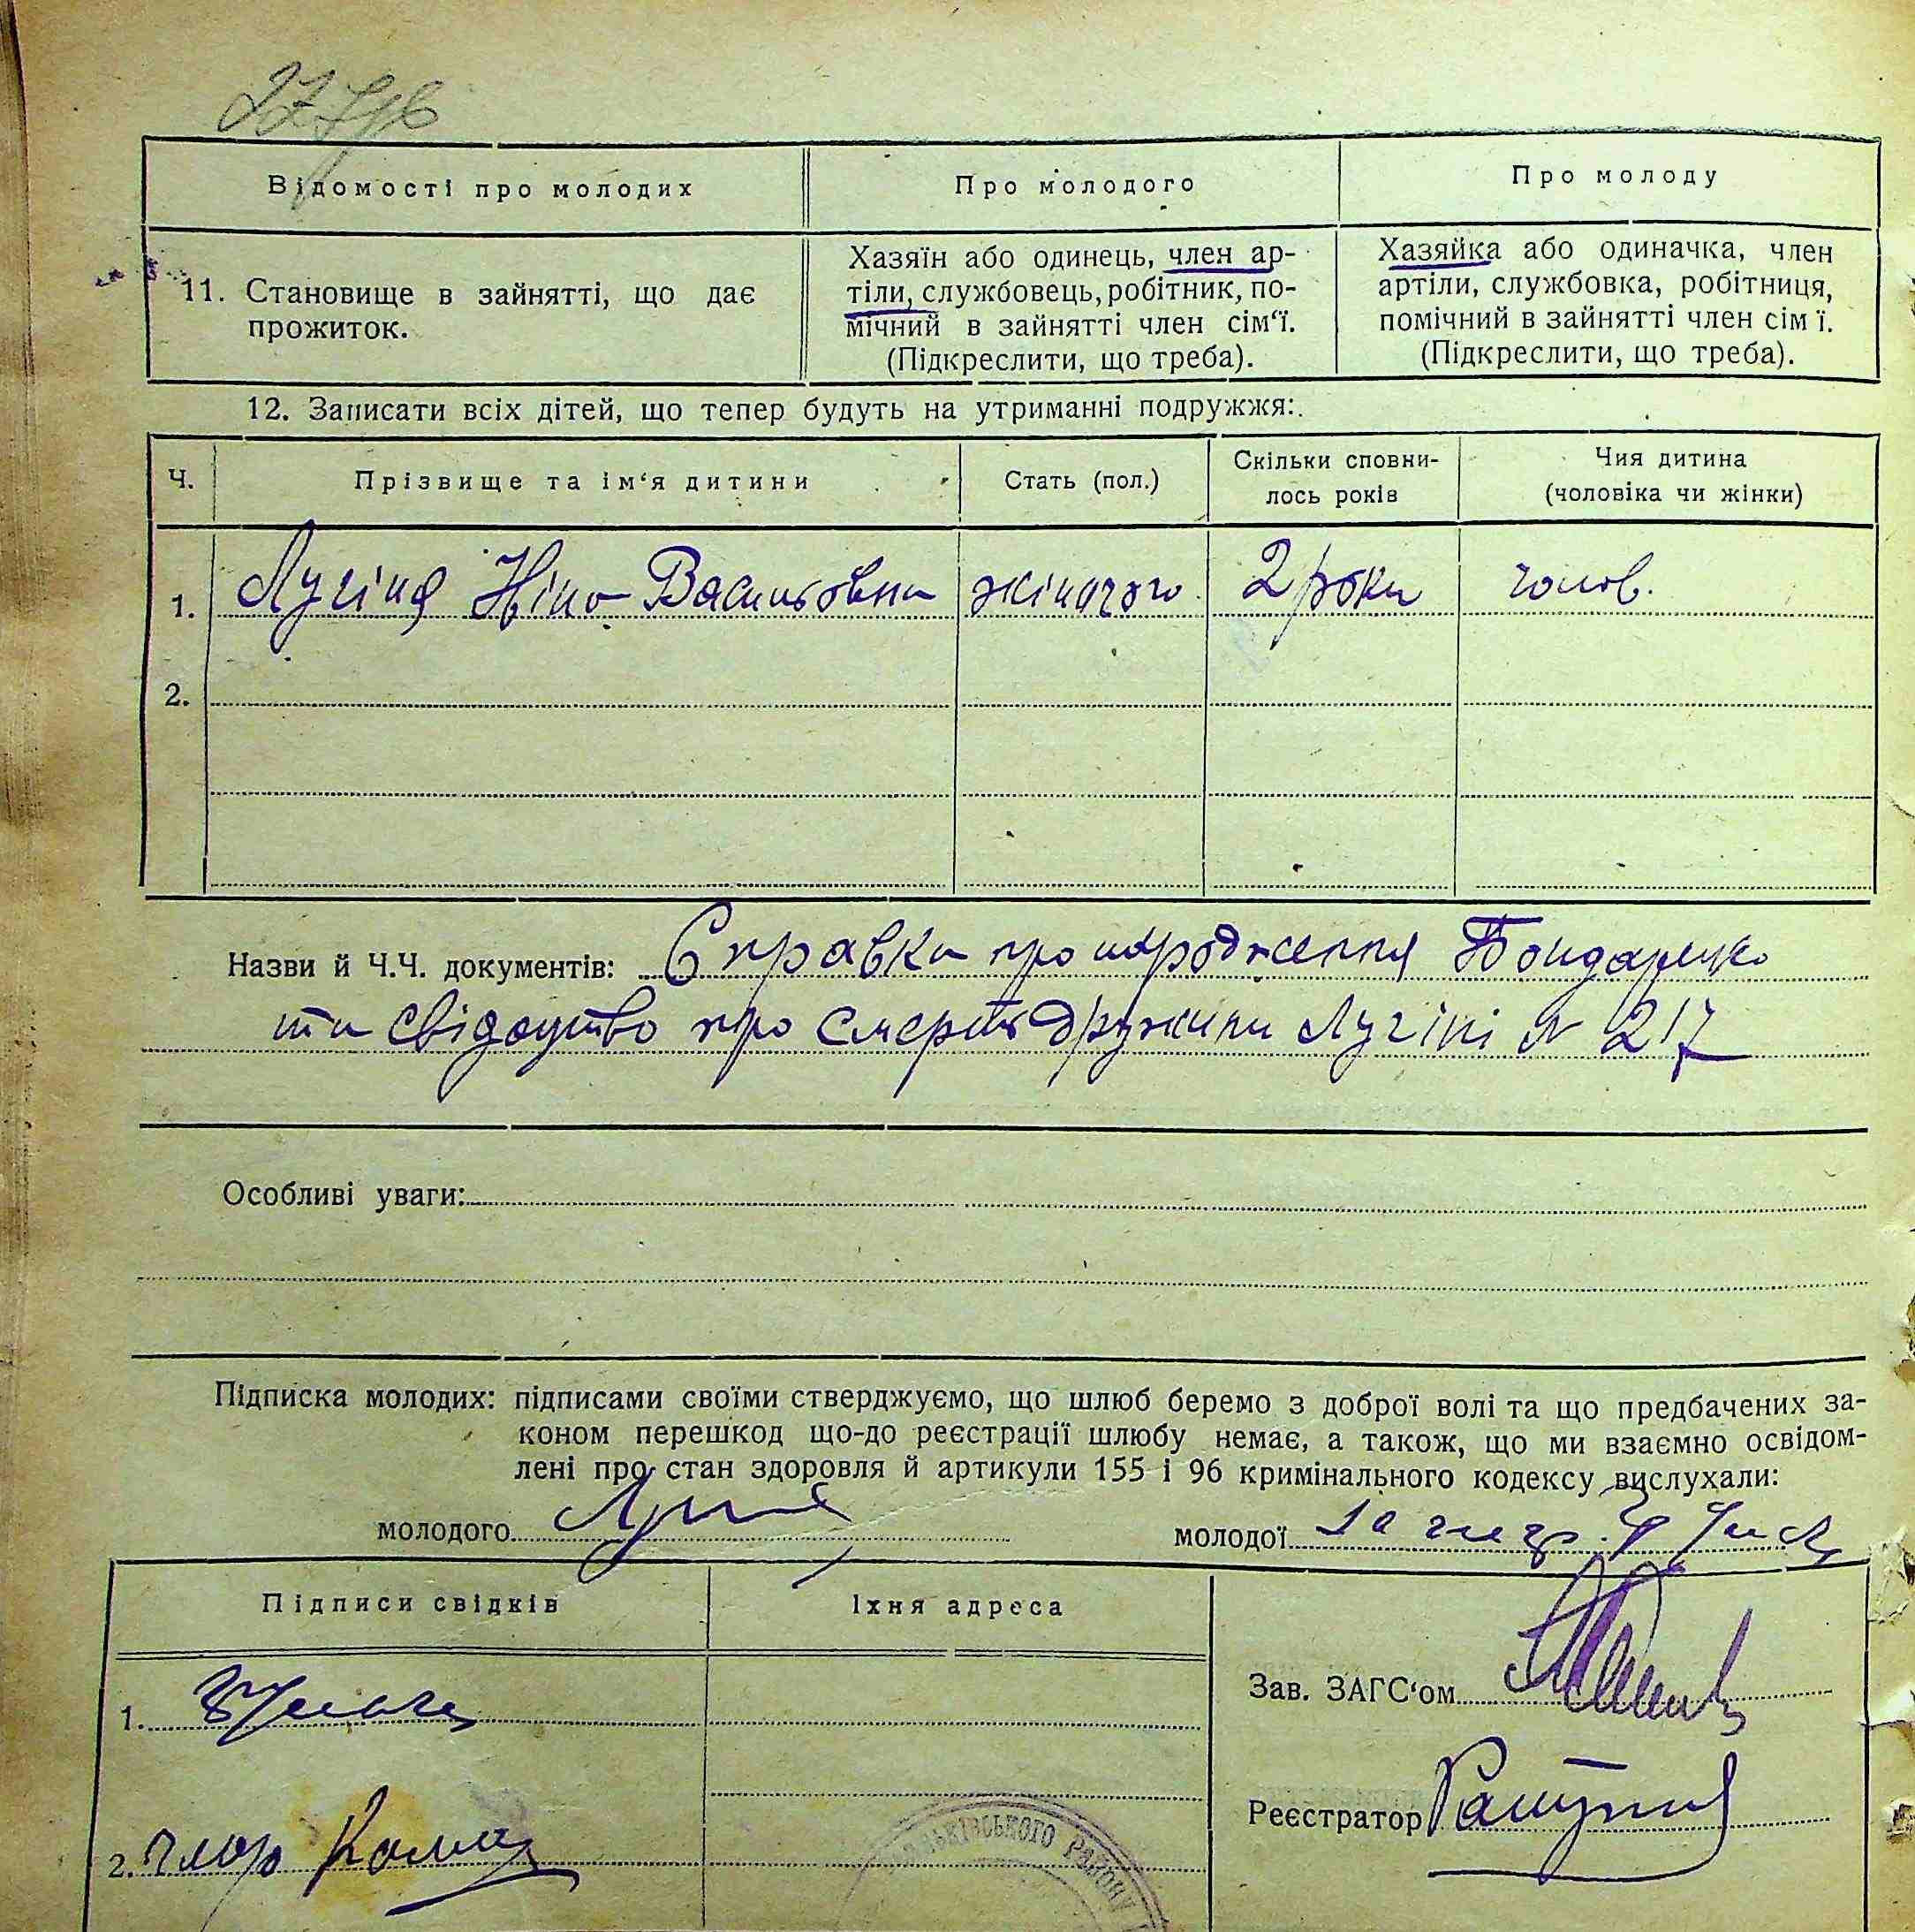 Відомості про молодих
Про молодого
Про молоду
11. Становище в зайнятті, що дає
прожиток.
Хазяїн або одинець, член ар-
тіли, службовець, робітник, по-
мічний в зайнятті член сім‘ї.
(Підкреслити, що треба).
Хазяйка або одиначка, член
артіли, службовка, робітниця,
помічний в зайнятті член сім ї.
(Підкреслити, що треба).
12. Записати всіх дітей, що тепер будуть на утриманні подружжя:
Ч.
Прізвище та ім‘я дитини
Стать (пол.)
Скільки сповни-
лось років
Чия дитина
(чоловіка чи жінки)
1. Лугіна Ніна Васильовна жіночого 2 роки чолов.
2.
Назви й Ч.Ч. документів: Справка про народження Бондаренко
та свідоцтво про смерть дружини Лугіні N 217
Особливі уваги:
Підписка молодих: підписами своїми стверджуємо, що шлюб беремо з доброї волі та що предбачених за-
коном перешкод що-до реєстрації шлюбу немає, а також, що ми взаємно освідом-
лені про стан здоровля й артикули 155 і 96 кримінального кодексу вислухали:
молодого
молодої
Підписи свідків
Їхня адреса
1.
2.
Зав. ЗАГС‘ом
Реєстратор
РАЙОНУ